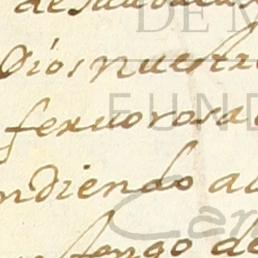 Dios nuestr
fervorosa
ndiendo a
tengo de
DE M
FUND
Cen